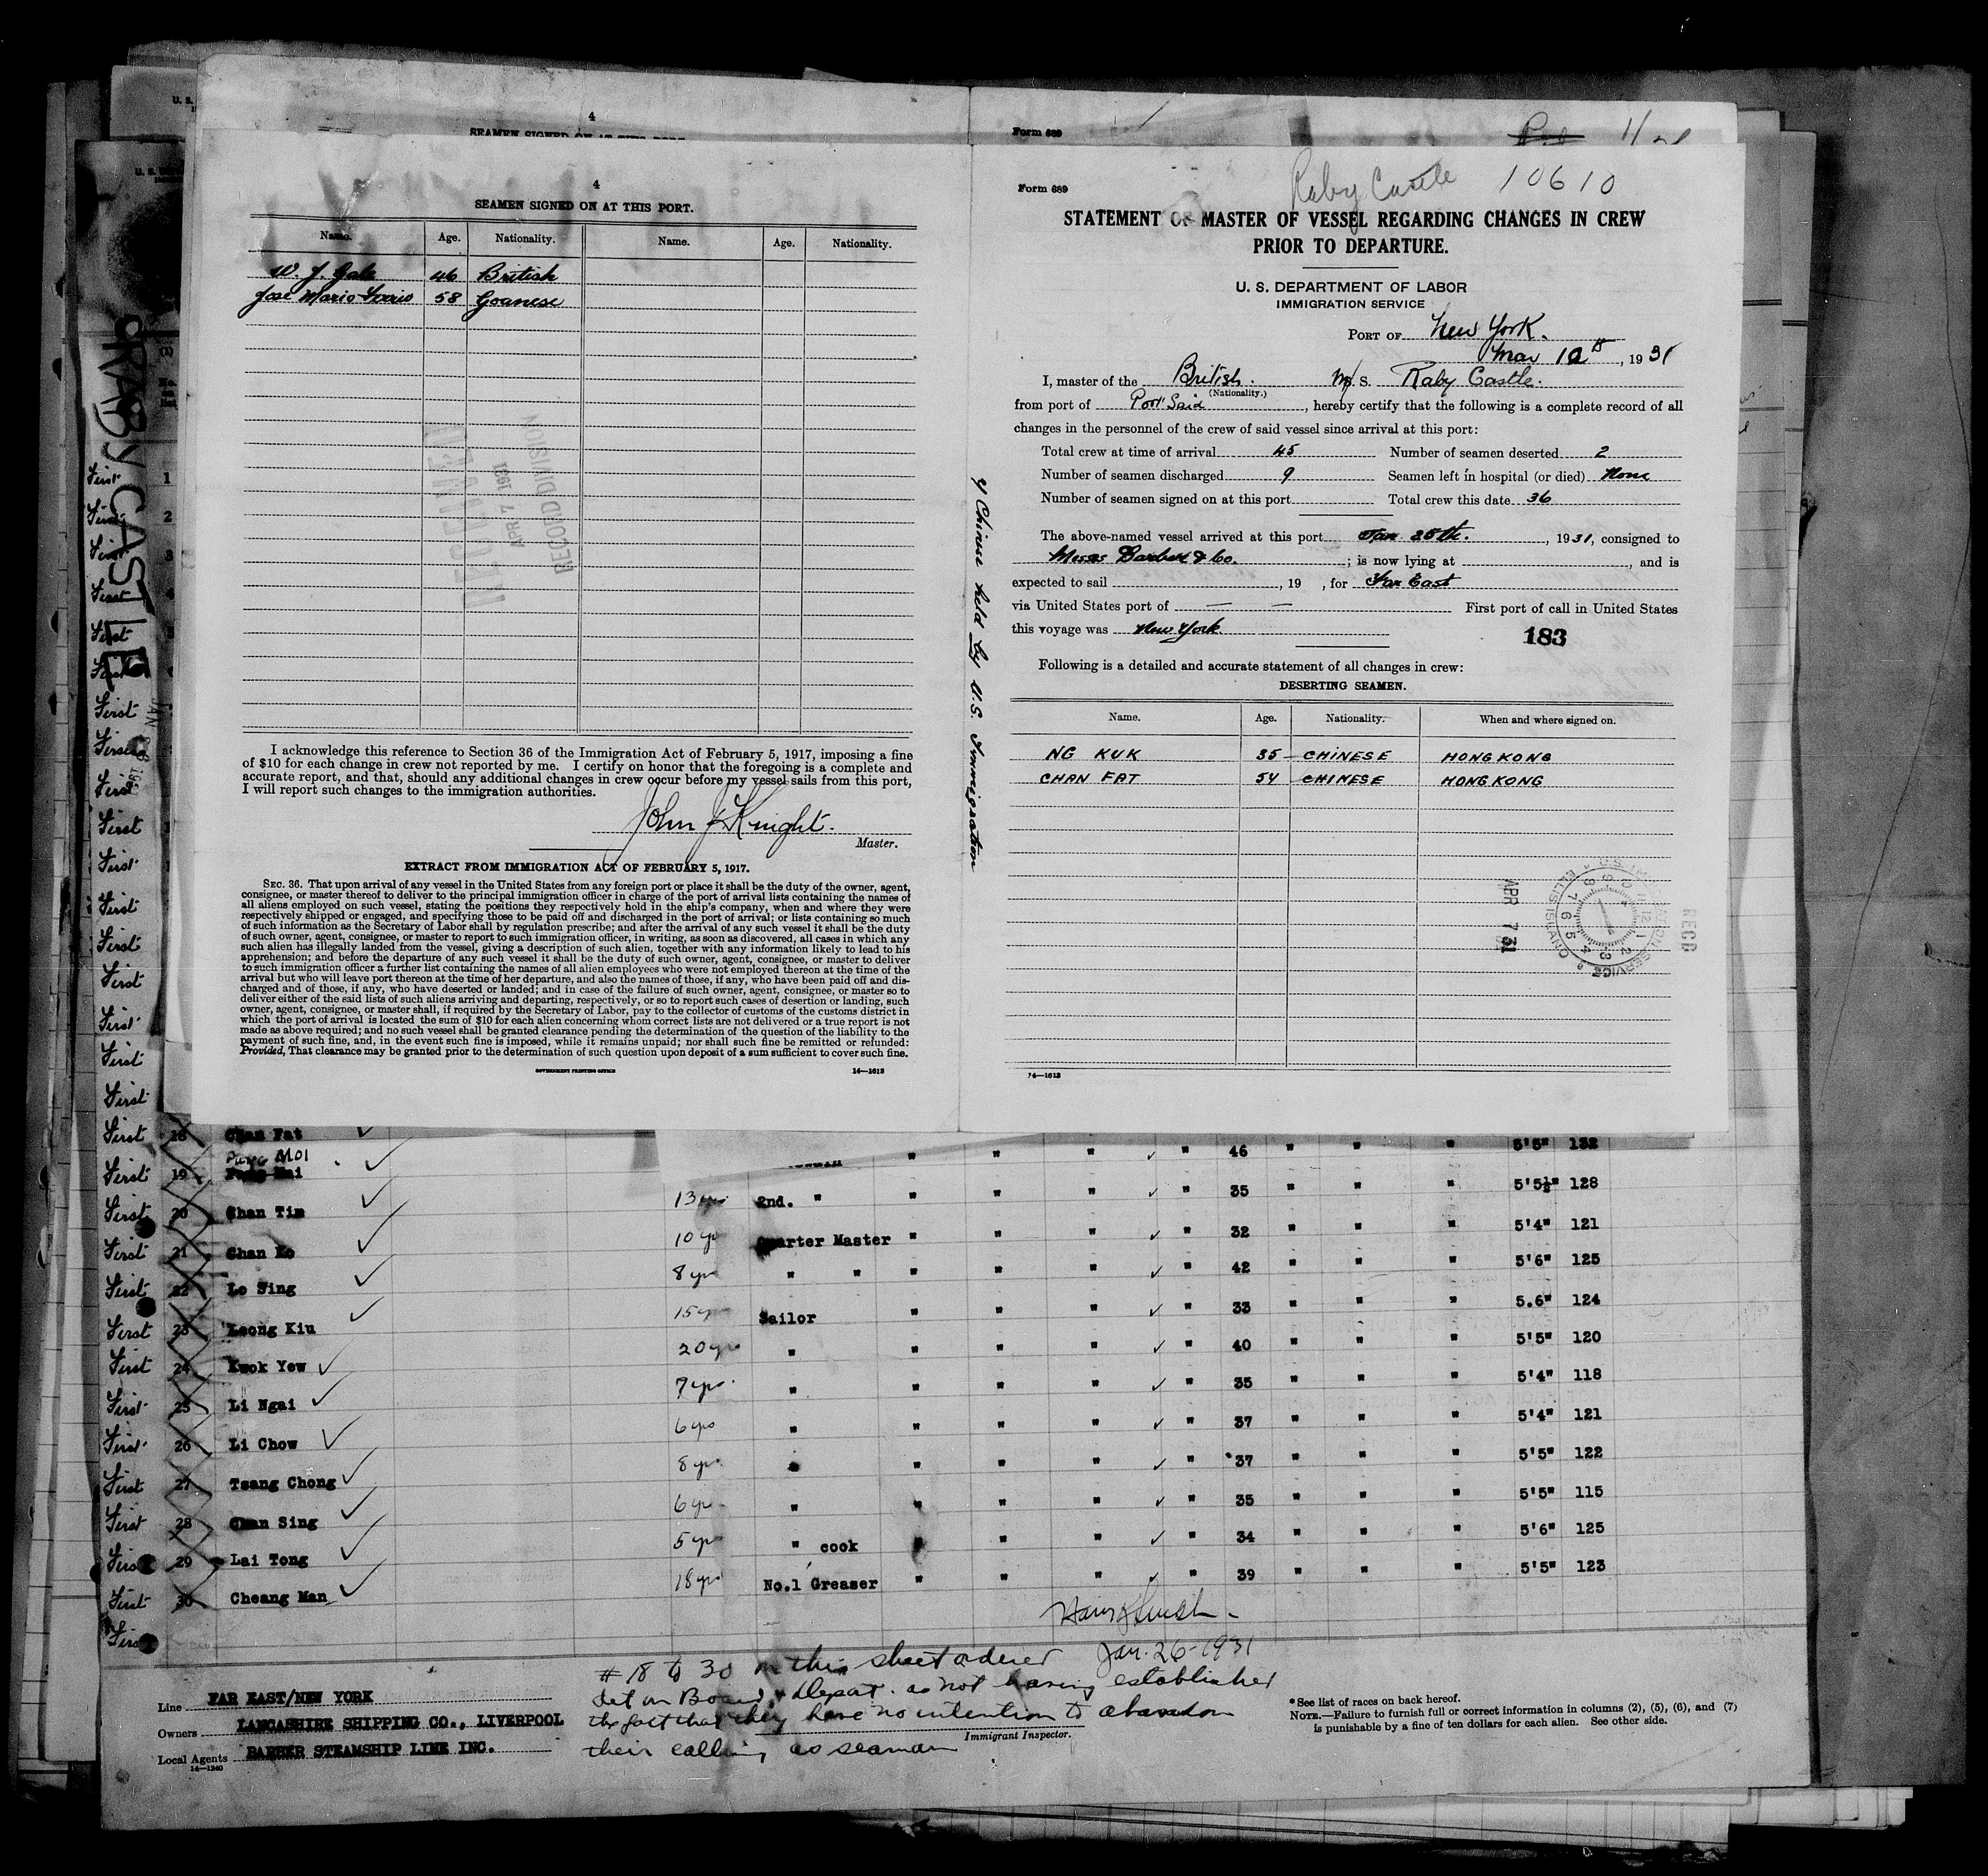 4
SEAMEN SIGNED ON AT THIS PORT.
Name. Age. Nationality. Name. Age. Nationality.
W. J. Gale 46 British
Jose Mario 58 Goanese
RECORD DIVISION
APR 7 1931
I acknowledge this reference to Section 36 of the Immigration Act of February 5, 1917, imposing a fine
of $10 for each change in crew not reported by me. I certify on honor that the foregoing is a complete and
accurate report, and that, should any additional changes in crew occur before my vessel sails from this port,
I will report such changes to the immigration authorities.
John J Knight.
Master.
EXTRACT FROM IMMIGRATION ACT OF FEBRUARY 5, 1917.
SEC. 36. That upon arrival of any vessel in the United States from any foreign port or place it shall be the duty of the owner, agent,
consignee, or master thereof to deliver to the principal immigration officer in charge of the port of arrival lists containing the names of
all aliens employed on such vessel, stating the positions they respectively hold in the ship's company, when and where they were
respectively shipped or engaged, and specifying those to be paid off and discharged in the port of arrival; or lists containing so much
of such information as the Secretary of Labor shall by regulation prescribe; and after the arrival of any such vessel it shall be the duty
of such owner, agent, consignee, or master to report to such immigration officer, in writing, as soon as discovered, all cases in which any
such alien has illegally landed from the vessel, giving a description of such alien, together with any information likely to lead to his
apprehension; and before the departure of any such vessel it shall be the duty of such owner, agent, consignee, or master to deliver
to such immigration officer a further list containing the names of all alien employees who were not employed thereon at the time of the
arrival but who will leave port thereon at the time of her departure, and also the names of those, if any, who have been paid off and dis-
charged and of those, if any, who have deserted or landed; and in case of the failure of such owner, agent, consignee, or master so to
deliver either of the said lists of such aliens arriving and departing, respectively, or so to report such cases of desertion or landing, such
owner, agent, consignee, or master shall, if required by the Secretary of Labor, pay to the collector of customs of the customs district in
which the port of arrival is located the sum of $10 for each alien concerning whom correct lists are not delivered or a true report is not
made as above required; and no such vessel shall be granted clearance pending the determination of the question of the liability to the
payment of such fine, and, in the event such fine is imposed, while it remains unpaid; nor shall such fine be remitted or refunded:
Provided, That clearance may be granted prior to the determination of such question upon deposit of a sum sufficient to cover such fine.
GOVERNMENT PRINTING OFFICE 14—1613
4 Chinese held by U.S. Immigration
Form 689
Form 689
Raby Castle 10610
STATEMENT OF MASTER OF VESSEL REGARDING CHANGES IN CREW
PRIOR TO DEPARTURE.
U. S. DEPARTMENT OF LABOR
IMMIGRATION SERVICE
PORT OF New York.
Mar 10th, 1931
I, master of the British. M. S. Raby Castle.
(Nationality.)
from port of Port Said, hereby certify that the following is a complete record of all
changes in the personnel of the crew of said vessel since arrival at this port:
Total crew at time of arrival 45 Number of seamen deserted 2
Number of seamen discharged 9 Seamen left in hospital (or died) None
Number of seamen signed on at this port Total crew this date 36
The above-named vessel arrived at this port Jan 25th. , 1931, consigned to
Messrs Barber & Co. ; is now lying at , and is
expected to sail , 19 , for Far East
via United States port of — — First port of call in United States
this voyage was New York
183
Following is a detailed and accurate statement of all changes in crew:
DESERTING SEAMEN.
Name. Age. Nationality. When and where signed on.
NG KUK 35 CHINESE HONG KONG
CHAN FAT 54 CHINESE HONG KONG
RECD
APR 7 31
ELLIS ISLAND
14—1613
RABY CASTLE
First 18 Chan Fat
Pung MOI
First 19 46 " " " 5'5" 132
First 20 Chan Tim 13 yrs 2nd. " " " " " 35 " " " 5'5½" 128
First 21 Chan Ko 10 yr Quarter Master " " " " 32 " " " 5'4" 121
First 22 Lo Sing 8 yr " " " " " " 42 " " " 5'6" 125
First 23 Leong Kiu 15 yr Sailor " " " " 33 " " " 5.6" 124
First 24 Kwok Yew 20 yrs " " " " " 40 " " " 5'5" 120
First 25 Li Ngai 7 yrs " " " " " 35 " " " 5'4" 118
First 26 Li Chow 6 yrs " " " " " 37 " " " 5'4" 121
First 27 Tsang Chong 8 yr " " " " " 37 " " " 5'5" 122
First 28 Chan Sing 6 yr " " " " " 35 " " " 5'5" 115
First 29 Lai Tong 5 yr " cook " " " " 34 " " " 5'6" 125
First 30 Cheang Man 18 yr No.1 Greaser " " " " 39 " " " 5'5" 123
Jan. 26-1931
# 18 to 30 on this sheet ordered
Det on Board & Deport. as not having established
the fact that they have no intention to abandon
their calling as seaman
Immigrant Inspector.
Line FAR EAST/NEW YORK
Owners LANCASHIRE SHIPPING CO., LIVERPOOL
Local Agents BARBER STEAMSHIP LINE INC.
14—1240
* See list of races on back hereof.
NOTE.—Failure to furnish full or correct information in columns (2), (5), (6), and (7)
is punishable by a fine of ten dollars for each alien. See other side.